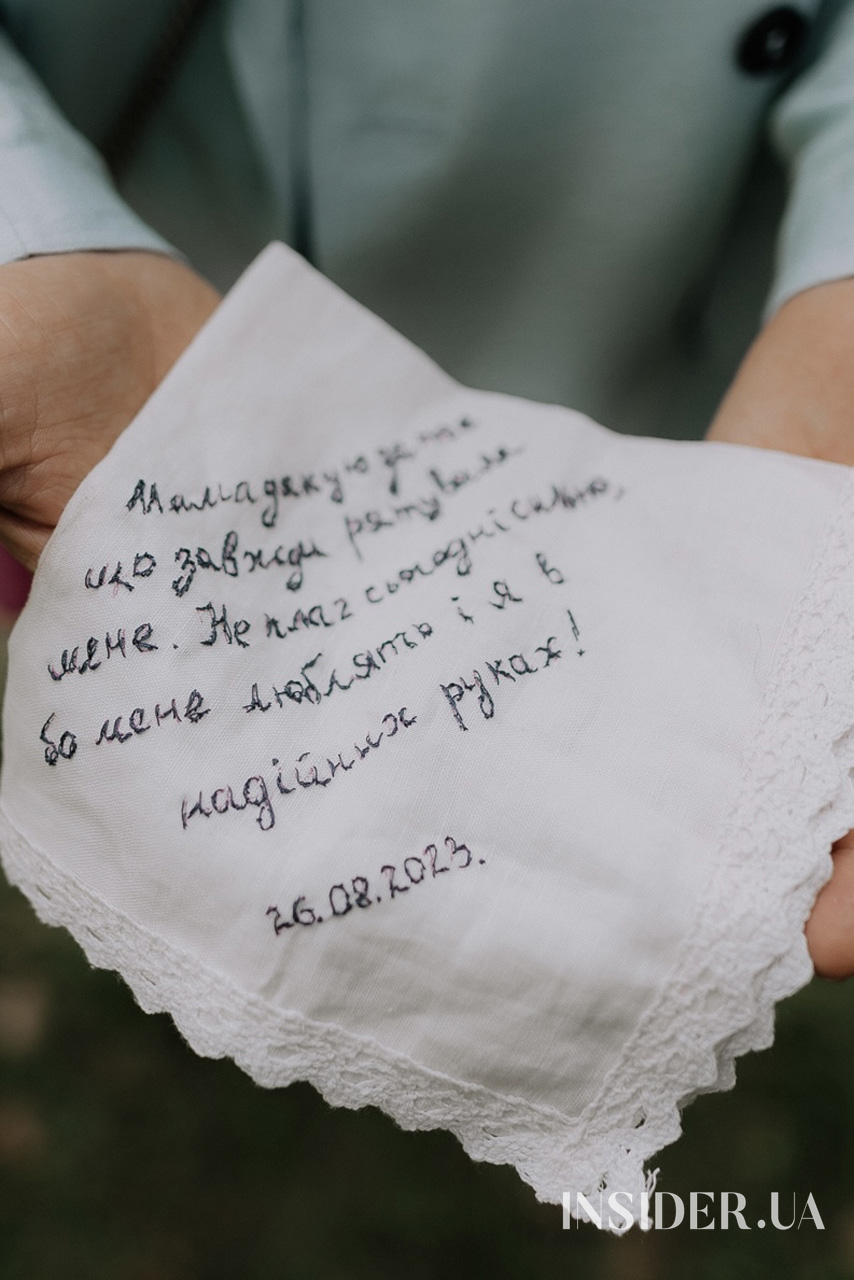 Мама дякую за те
що завжди рятувала
мене. Не плач сьогодні сильно,
бо мене люблять і я в
надійних руках!
26.08.2023.
INSIDER.UA